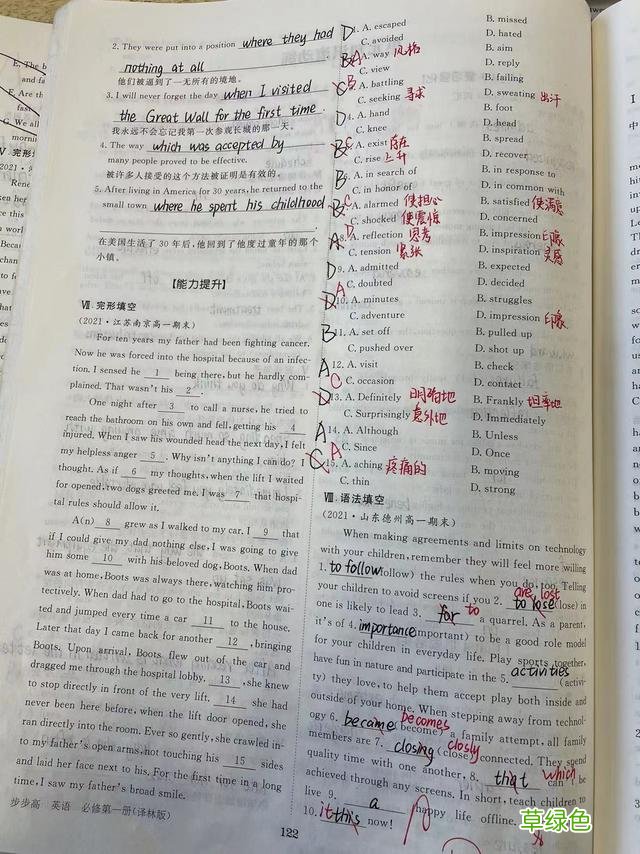 2. They were put into a position where they had
nothing at all
他们被逼到了一无所有的境地。
3. I will never forget the day when I visited
the Great Wall for the first time.
我永远不会忘记我第一次参观长城的那一天。
4. The way which was accepted by
many people proved to be effective.
被许多人接受的这个方法被证明是有效的。
5. After living in America for 30 years, he returned to the
small town where he spent his childhood
在美国生活了30年后,他回到了他度过童年的那个
小镇。
【能力提升】
Ⅶ. 完形填空
(2021·江苏南京高一期末)
For ten years my father had been fighting cancer.
Now he was forced into the hospital because of an infec-
tion. I sensed he 1 being there, but he hardly com-
plained. That wasn't his 2 .
One night after 3 to call a nurse, he tried to
reach the bathroom on his own and fell, getting his 4
injured. When I saw his wounded head the next day, I felt
my helpless anger 5 . Why isn't anything I can do? I
thought. As if 6 my thoughts, when the lift I waited
for opened, two dogs greeted me. I was 7 that hospi-
tal rules should allow it.
A(n) 8 grew as I walked to my car. I 9 that
if I could give my dad nothing else, I was going to give
him some 10 with his beloved dog, Boots. When dad
was at home, Boots was always there, watching him pro-
tectively. When dad had to go to the hospital, Boots wai-
ted and jumped every time a car 11 to the house.
Later that day I came back for another 12 , bringing
Boots. Upon arrival, Boots flew out of the car and
dragged me through the hospital lobby. 13 , she knew
to stop directly in front of the very lift. 14 she had
never been here before, when the lift door opened, she
ran directly into the room. Ever so gently, she crawled in-
to my father's open arms, not touching his 15 sides
and laid her face next to his. For the first time in a long
time, I saw my father's broad smile.
步步高 英语 必修第一册(译林版)
122
D 1. A. escaped B. missed
C. avoided D. hated
B A A. way 风格 B. aim
C. view D. reply
C B A. battling B. failing
C. seeking 寻求 D. sweating 出汗
D 4. A. hand B. foot
C. knee D. head
B C A. exist 存在 B. spread
C. rise 上升 D. recover
B 6. A. in search of B. in response to
C. in honor of D. in common with
B C A. alarmed 使担心 B. satisfied 使满意
C. shocked 使震惊 D. concerned
A D 8. A. reflection 思考 B. impression 印象
C. tension 紧张 D. inspiration 灵感
D 9. A. admitted B. expected
C. doubted D. decided
D A 10. A. minutes B. struggles
C. adventure D. impression 印象
B 11. A. set off B. pulled up
C. pushed over D. shot up
A 12. A. visit B. check
C. occasion D. contact
D C 13. A. Definitely 明确地 B. Frankly 坦率地
C. Surprisingly 意外地 D. Immediately
A 14. A. Although B. Unless
C. Since D. Once
C A 15. A. aching 疼痛的 B. moving
C. thin D. strong
Ⅷ. 语法填空
(2021·山东德州高一期末)
When making agreements and limits on technology
with your children, remember they will feel more willing
1. to follow (follow) the rules when you do, too. Telling
your children to avoid screens if you 2. to lose are lost (lose) in
one is likely to lead 3. for to a quarrel. As a parent,
it's of 4. importance (important) to be a good role model
for your children in everyday life. Play sports together,
have fun in nature and participate in the 5. activities (activi-
ty) they love, to help them accept play both inside and
outside of your home. When stepping away from technol-
ogy 6. became becomes (become) a family attempt, all family
members are 7. closing closly (close) connected. They spend
quality time with one another, 8. that which can be
achieved through any screens. In short, teach children to
live 9. a happy life offline.
10. it this now!
草绿色